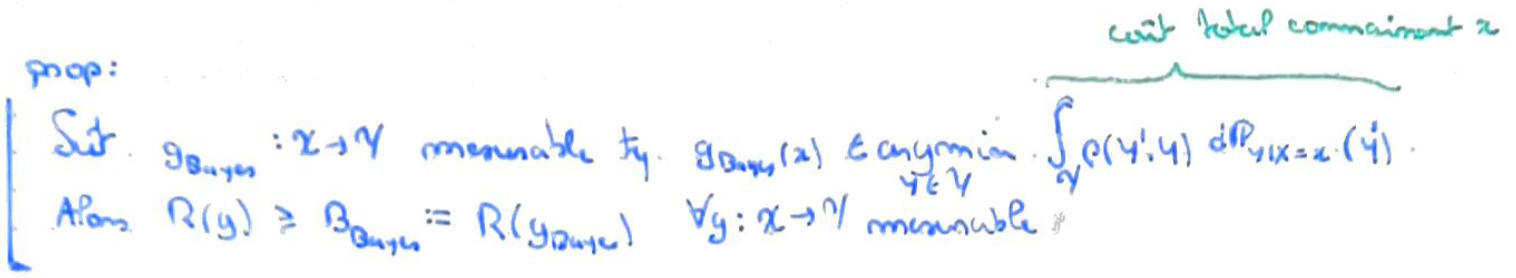 coût total connaissant x
prop:
Soit g_Bayes : X → Y mesurable tq. g_Bayes(x) ∈ argmin_{y ∈ Y} ∫_Y ρ(y', y) dP_{Y|X=x}(y').
Alors R(g) ≥ R_Bayes := R(g_Bayes) ∀g : X → Y mesurable.